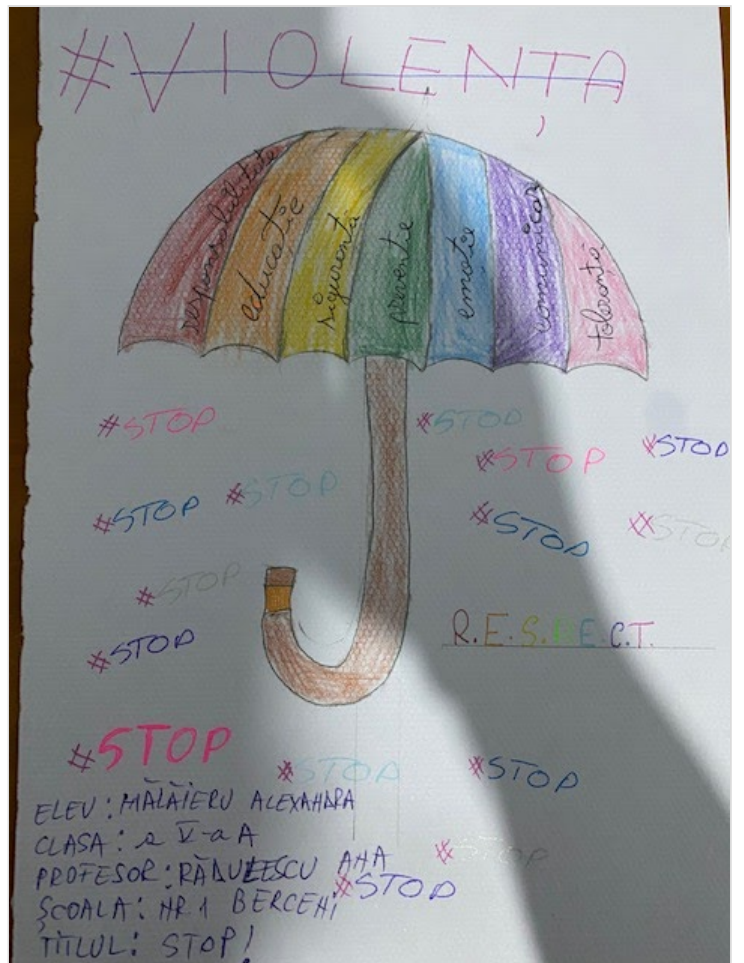 #VIOLENȚA
responsabilitate
educație
siguranță
prevenție
emoție
comunicar
toleranță
#STOP #STOP
#STOP #STOP
#STOP #STOP
#STOP #STOP
#STOP
#STOP
R.E.S.P.E.C.T.
#STOP
#STOP #STOP
ELEV: MĂLĂIERU ALEXAHARA
CLASA: a V-a A
PROFESOR: RĂDULESCU AHA
#STOP
#STOP
ȘCOALA: HR 1 BERCEHI
TITLUL: STOP!